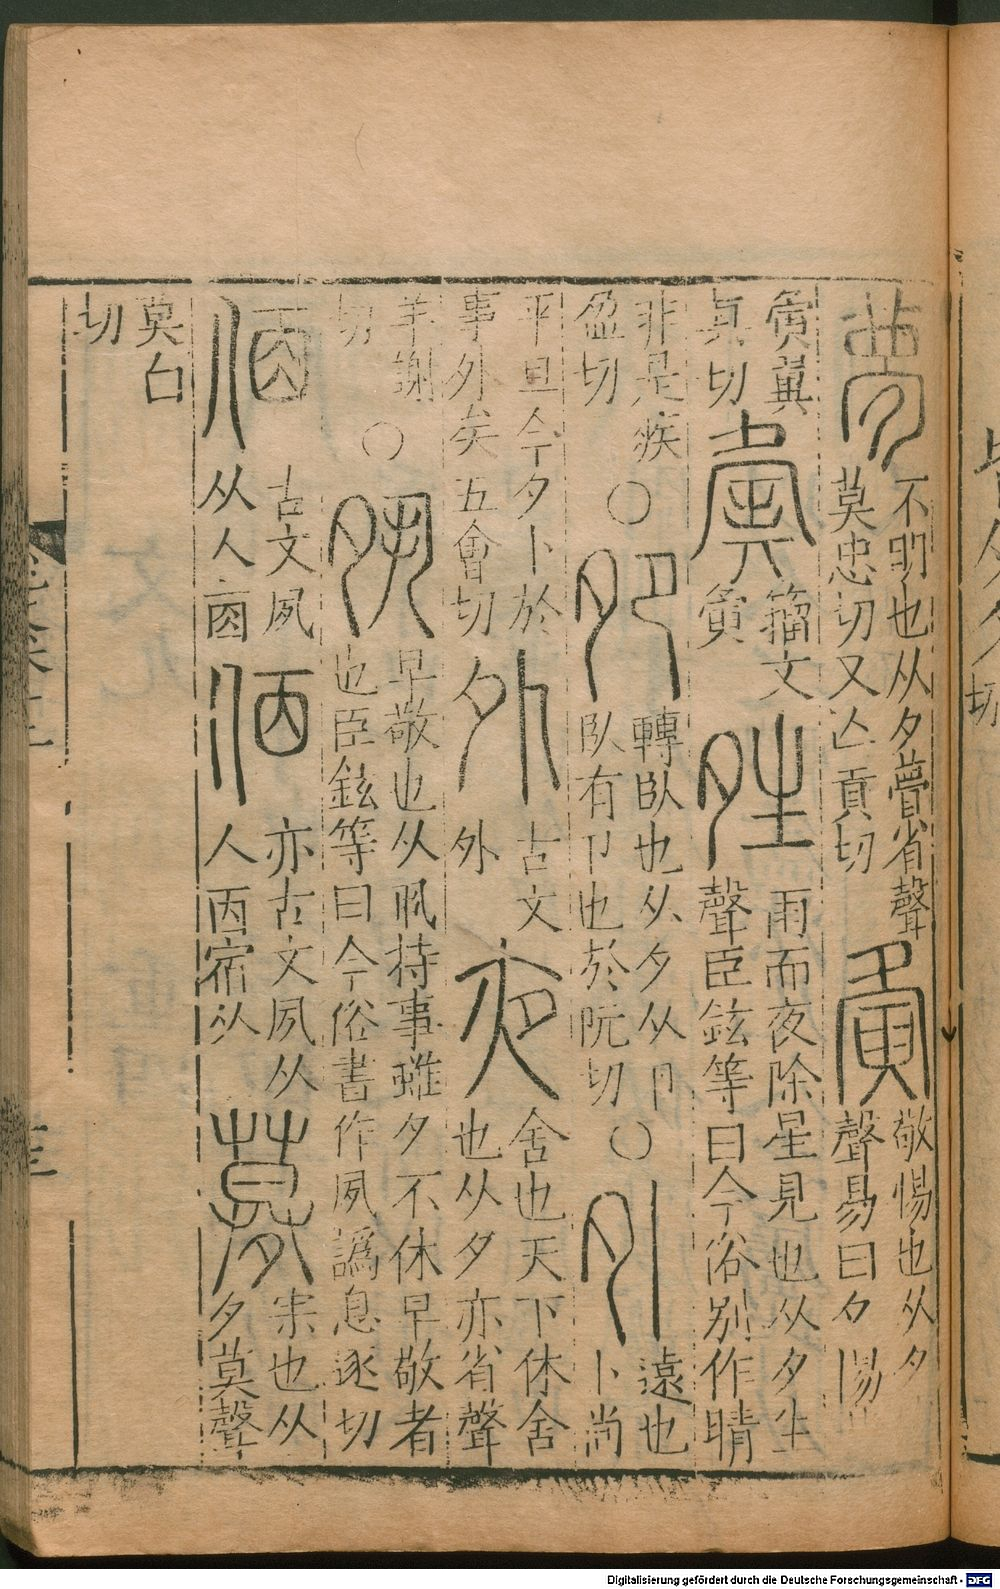 夢
不明也从夕瞢省聲
莫忠切又亡貢切
夤
敬惕也从夕
聲易曰夕惕
夤冀
真切
籀文
夤
夝
雨而夜除星見也从夕生
聲臣鉉等曰今俗別作晴
非是疾
盈切
○
夗
轉臥也从夕从卪
臥有卪也於阮切
○
外
遠也
卜尚
平旦今夕卜於
事外矣五會切
外
古文
外
夜
舍也天下休舍
也从夕亦省聲
羊謝
切
○
夙
早敬也从丮持事雖夕不休早敬者
也臣鉉等曰今俗書作夙譌息逐切
㐽
古文夙
从人㐁
㑉
亦古文夙从
人㐁宿从
募
宋也从
夕莫聲
莫白
切
Digitalisierung gefördert durch die Deutsche Forschungsgemeinschaft - DFG